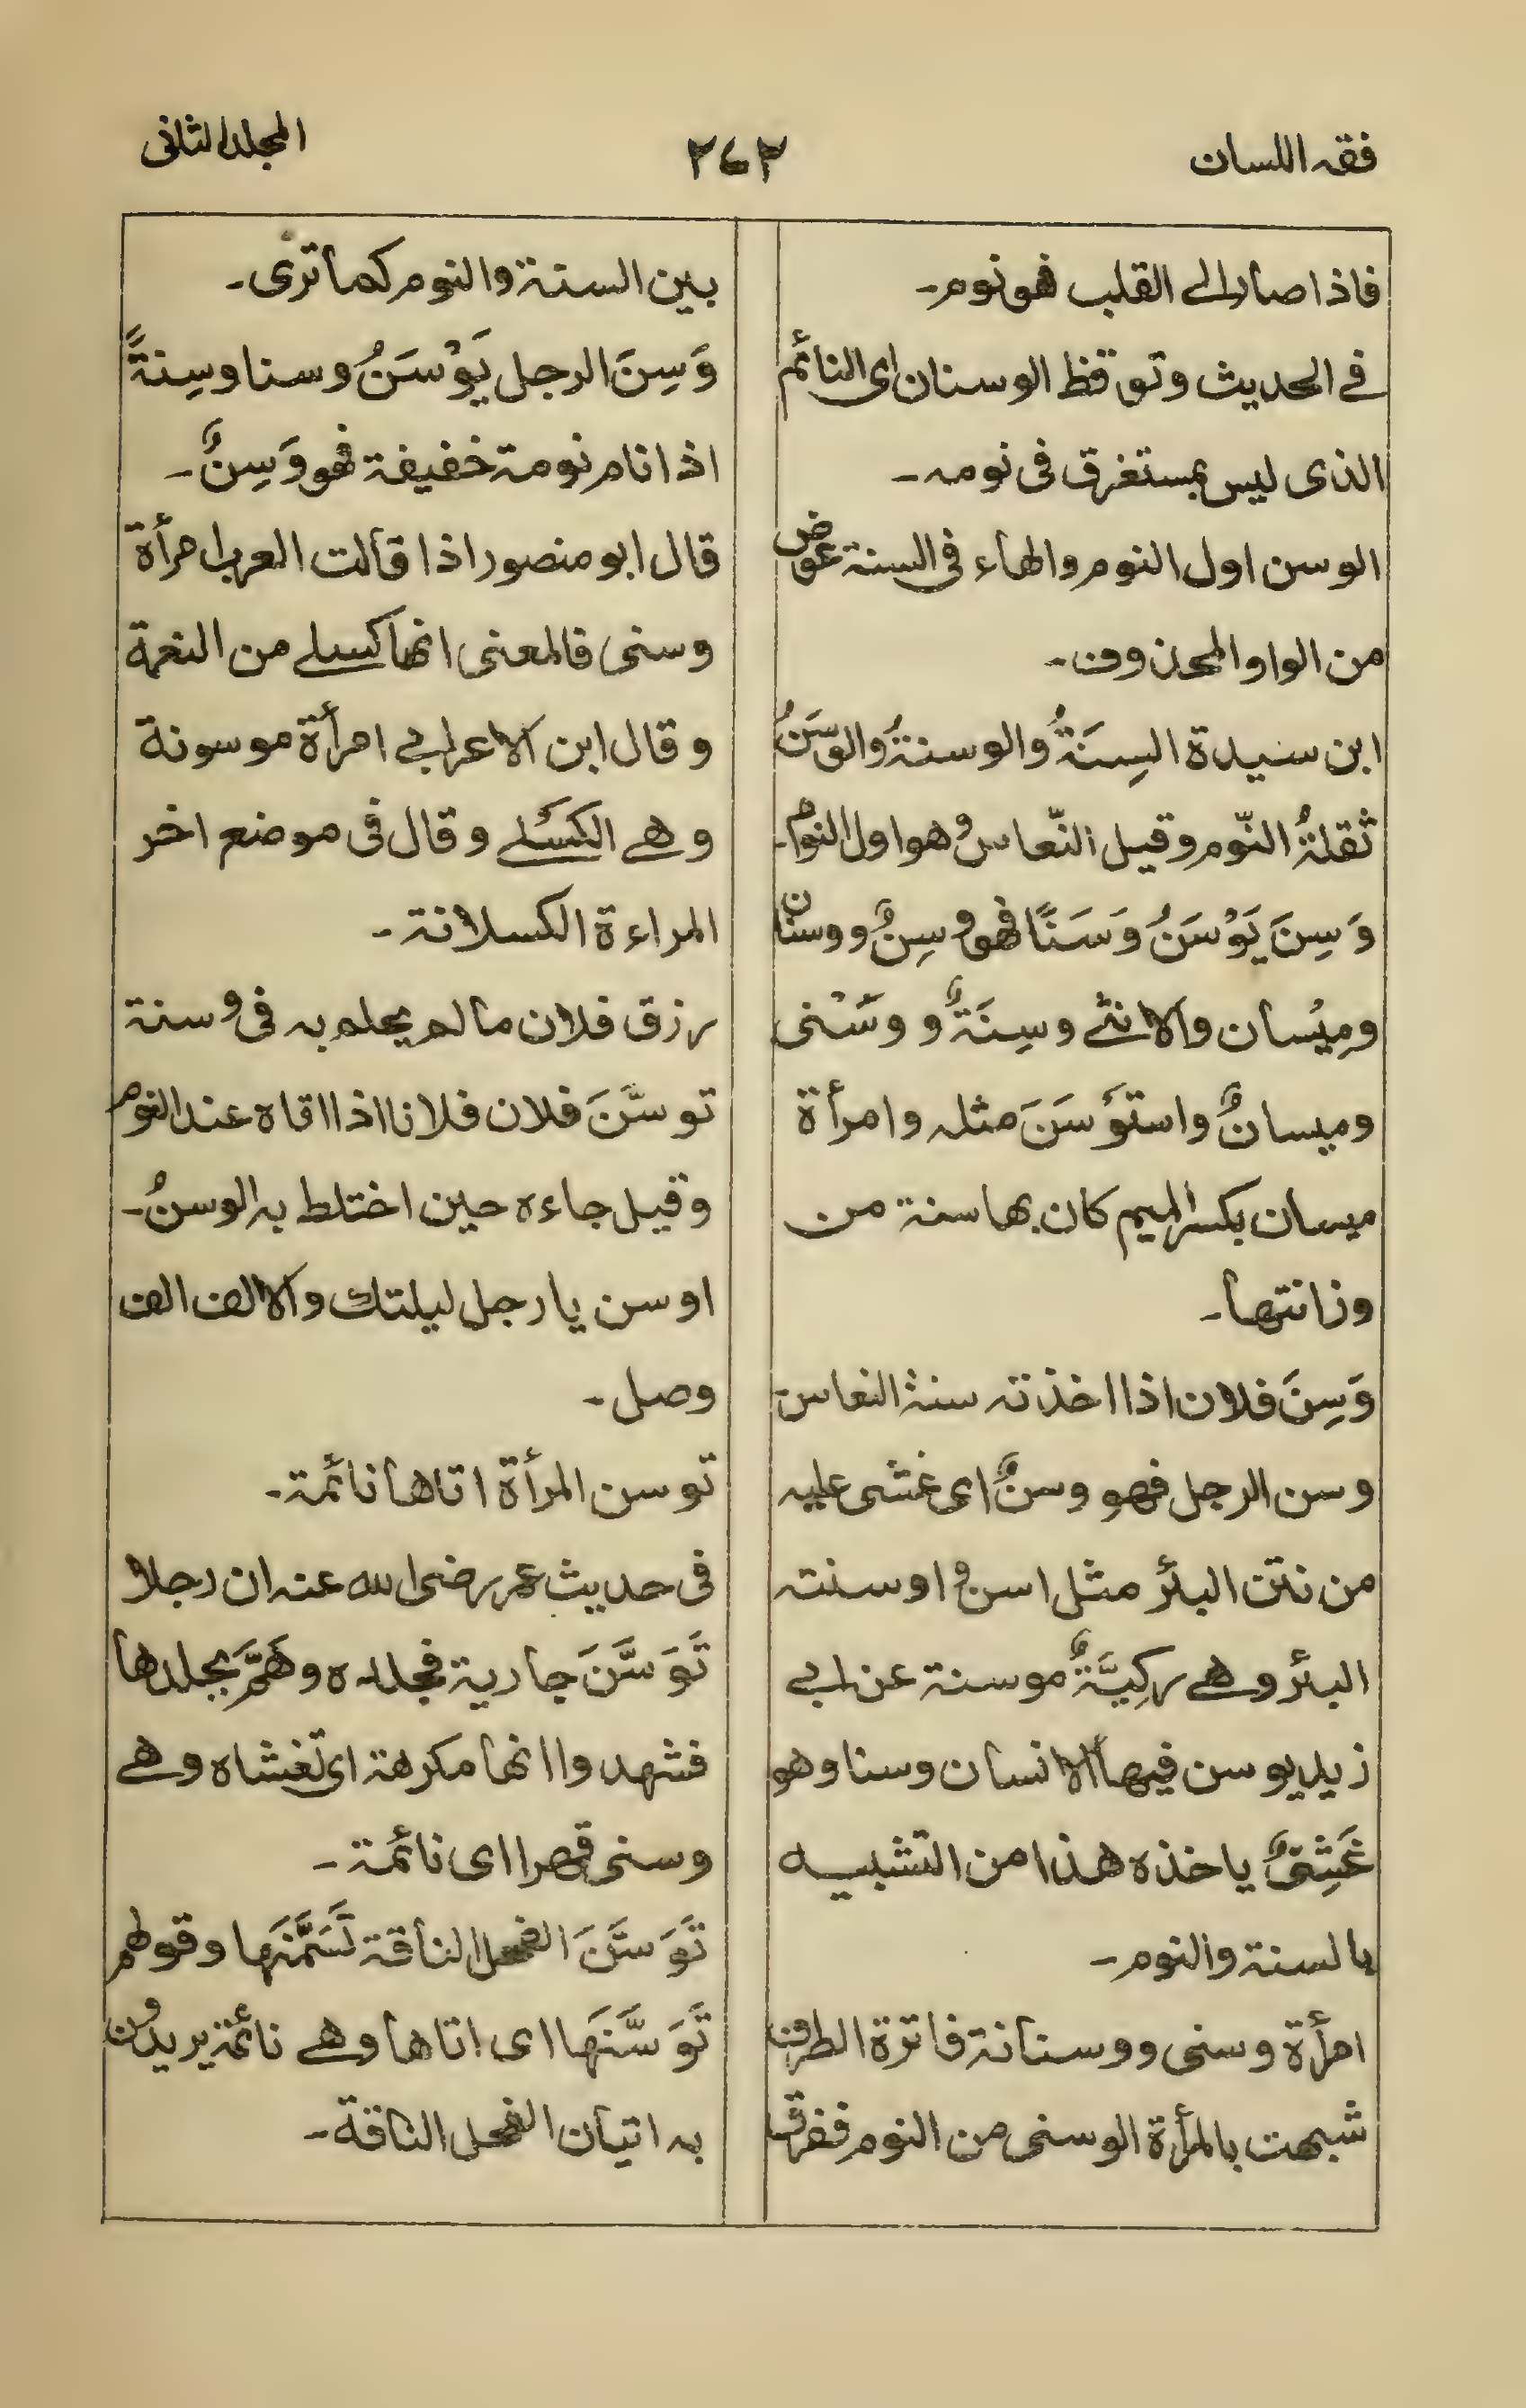 فقه اللسان
٢٧٣
المجلد الثانى
فاذا صار الى القلب فهو نوم۔
فى الحديث وتوقظ الوسنان اى النائم
الذى ليس بمستغرق فى نومه۔
الوسن اول النوم والهاء فى السنة عوض
من الواو المحذوف۔
ابن سيدة السِنَةُ والوسنةُ والوَسَنُ
ثقلةُ النّوم وقيل النّعاسُ وهو اول النوم۔
وَسِنَ يَوْسَنُ وَسَنًا فهو وسِنٌ ووسنان
ومِيْسان والانثى وسِنَةٌ و وسْنى
وميسانٌ واستوْسَنَ مثله وامرأة
ميسان بكسر الميم كان بها سنة من
وزانتها۔
وَسِنَ فلان اذا اخذته سنة النعاس
وسن الرجل فهو وسنٌ اى غشى عليه
من نتن البئر مثل اسن و اوسنته
البئر وهى ركِيَّةٌ موسنة عن ابى
زيد يوسن فيها الانسان وسنا وهو
غَشِىٌ ياخذه هذا من التشبيه
بالسنة والنوم۔
امرأة وسنى ووسنانة فاترة الطرف
شبهت بالمرأة الوسنى من النوم ففرق
بين السنة والنوم كما ترى۔
وَسِنَ الرجل يَوْسَنُ وسنا وسِنةً
اذا نام نومة خفيفة فهو وَسِنٌ۔
قال ابو منصور اذا قالت العرب امرأة
وسنى فالمعنى انها كسلى من النعمة
وقال ابن الاعرابى امرأة موسونة
وهى الكسْلى وقال فى موضع اخر
المراءة الكسلانة۔
رزق فلان مالم يحلم به فى وسنة
توسَّنَ فلان فلانا اذا اقاه عند النوم
وقيل جاءه حين اختلط به الوسنُ۔
اوسن يا رجل ليلتك والالف الف
وصل۔
توسن المرأة اتاها نائمة۔
فى حديث عمر رضى الله عنه ان رجلا
تَوَسَّنَ جارية فجلده وهَمَّ بجلدها
فشهدوا انها مكرهة اى تغشاه وهى
وسنى قهرا اى نائمة۔
تَوَسَّنَ الفحل الناقة تَسَمَّنَها وقولهم
تَوَسَّنَها اى اتاها وهى نائمة يريدون
به اتيان الفحل الناقة۔